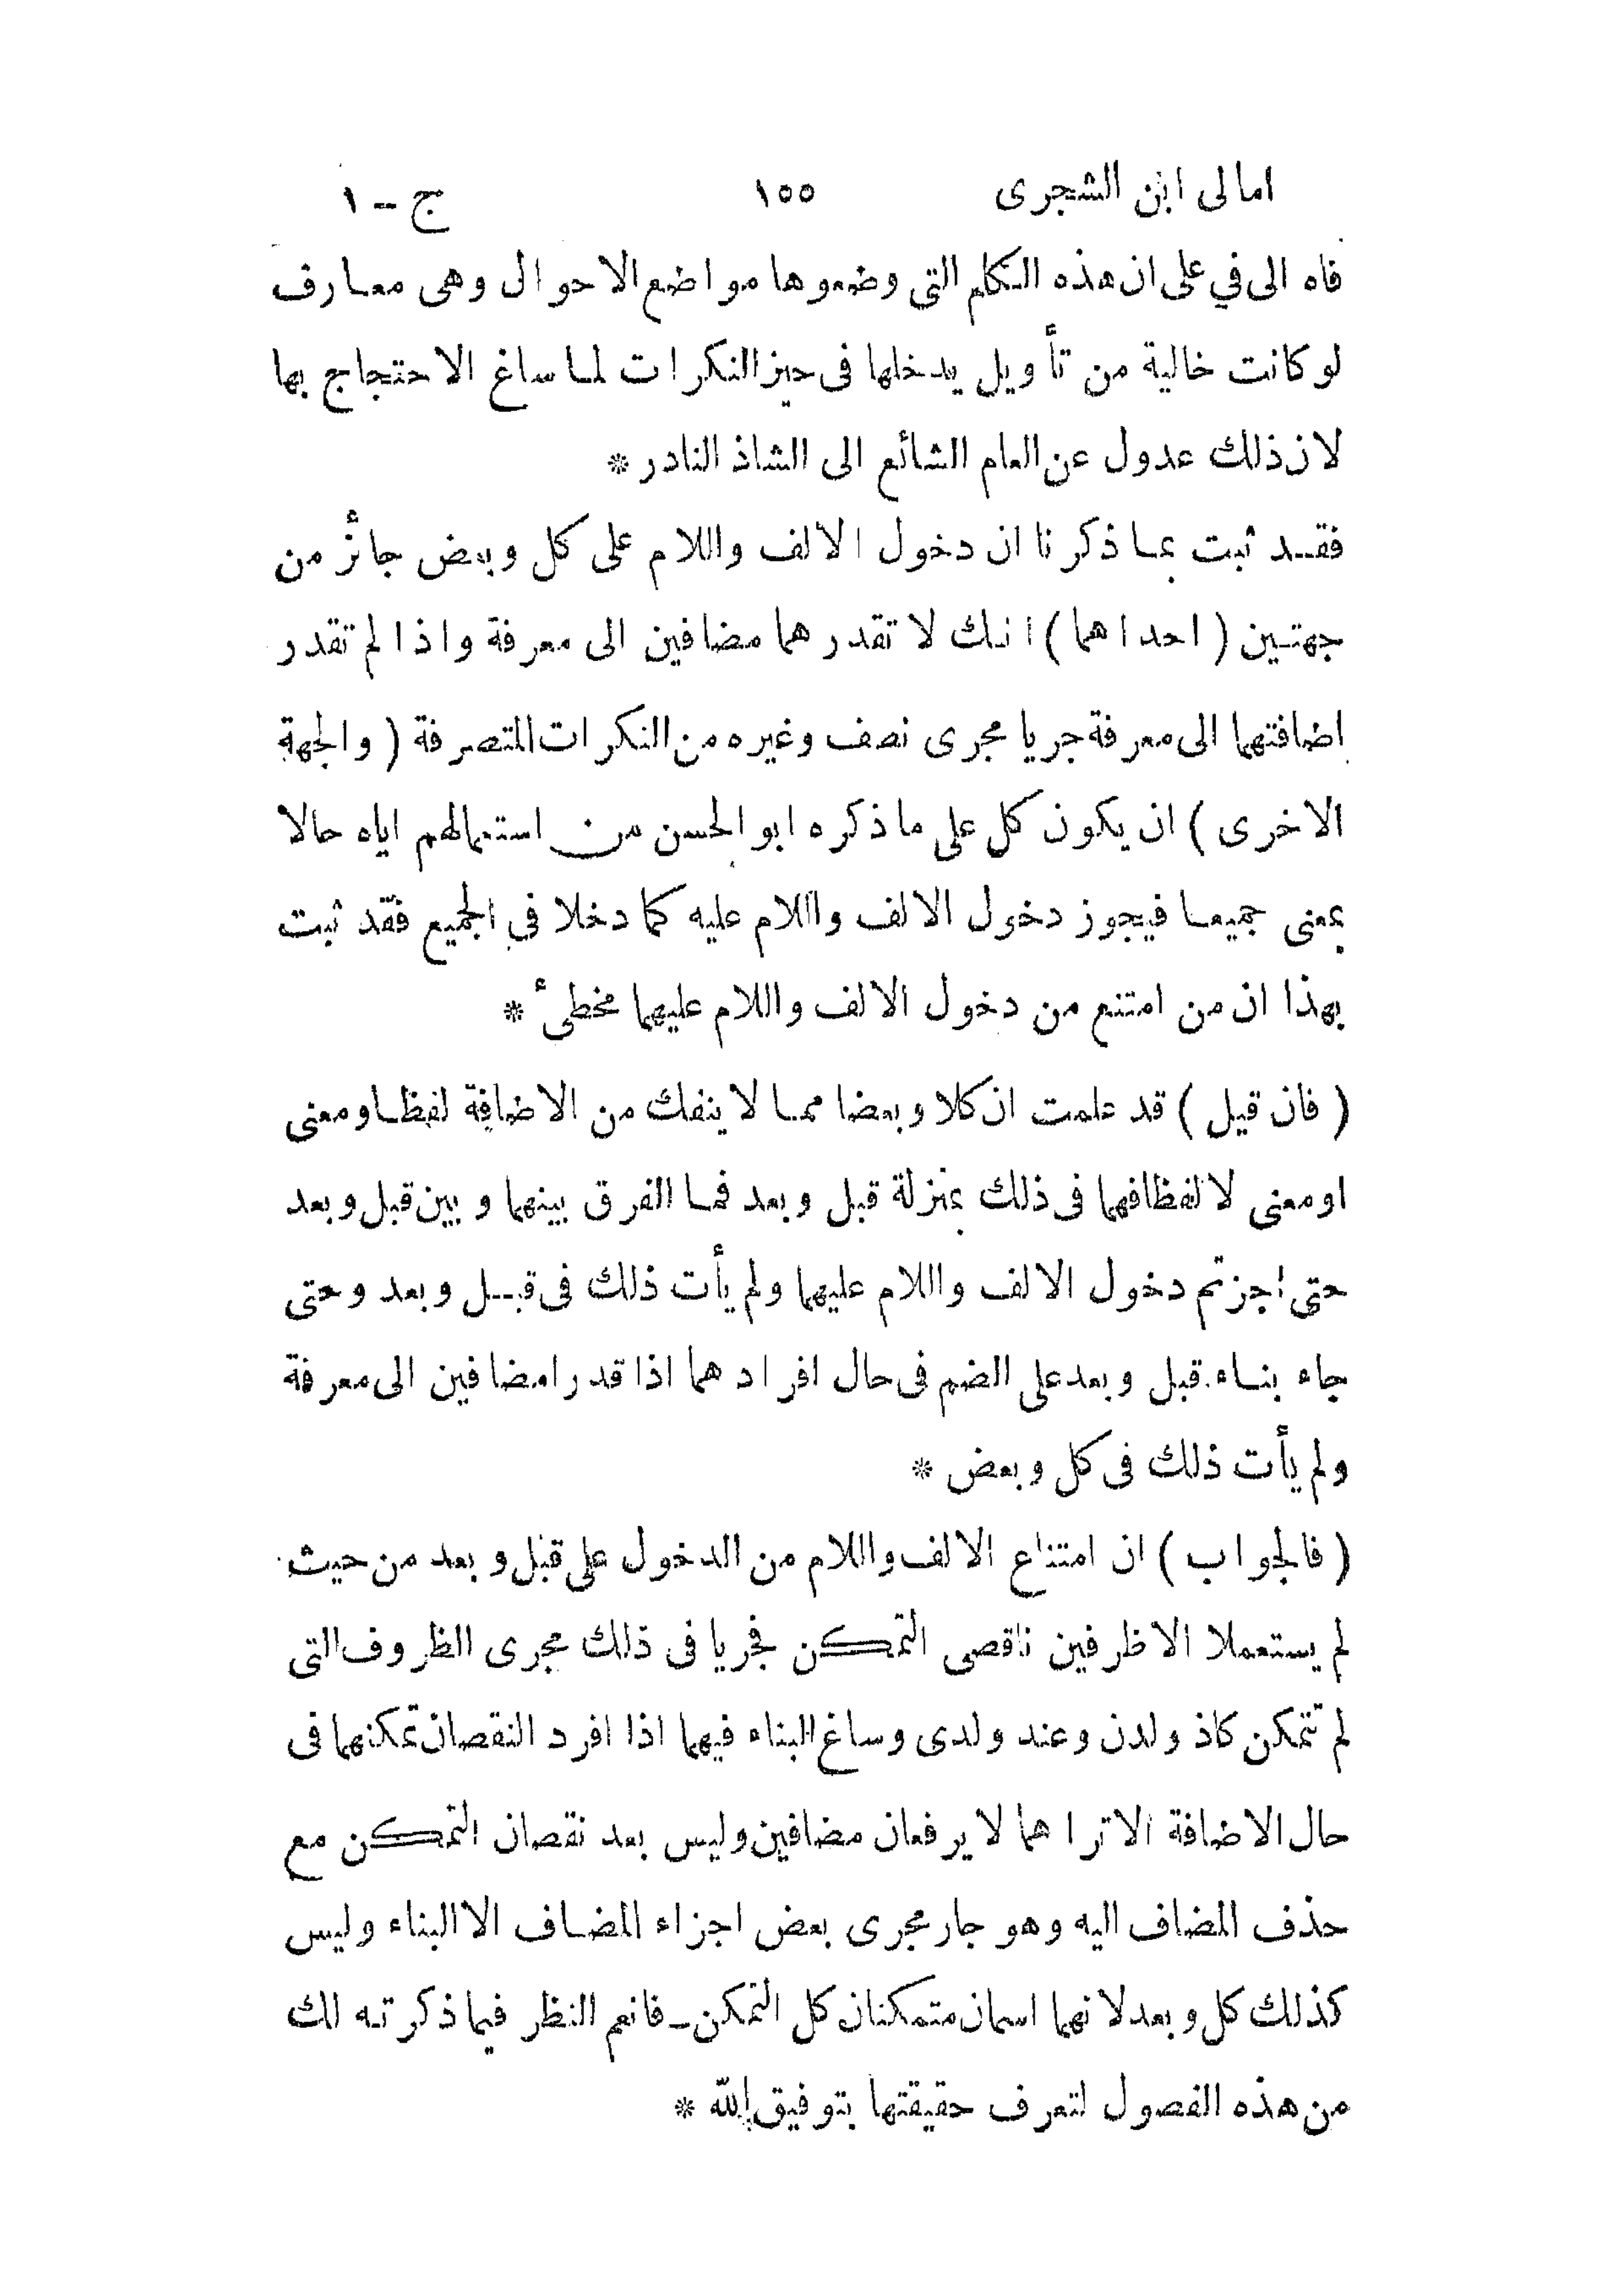 امالى ابن الشجرى ١٥٥ ج - ١
فاه الى في على ان هذه الكلم التى وضعوها مواضع الاحوال وهى معارف
لو كانت خالية من تأويل يدخلها فى حيز النكرات لما ساغ الاحتجاج بها
لان ذلك عدول عن العام الشائع الى الشاذ النادر *
فقد ثبت بما ذكرنا ان دخول الالف واللام على كل وبعض جائز من
جهتين ( احداهما ) انك لا تقدرهما مضافين الى معرفة واذا لم تقدر
اضافتهما الى معرفة جريا مجرى نصف وغيره من النكرات المتصرفة ( والجهة
الاخرى ) ان يكون كل على ما ذكره ابو الحسن من استعمالهم اياه حالا
بمعنى جميعا فيجوز دخول الالف واللام عليه كما دخلا في الجميع فقد ثبت
بهذا ان من امتنع من دخول الالف واللام عليهما مخطىٔ *
( فان قيل ) قد علمت ان كلا وبعضا مما لا ينفك من الاضافة لفظا ومعنى
او معنى لا لفظا فهما فى ذلك بمنزلة قبل وبعد فما الفرق بينهما وبين قبل وبعد
حتى اجزتم دخول الالف واللام عليهما ولم يأت ذلك فى قبل وبعد وحتى
جاء بناء قبل وبعد على الضم فى حال افرادهما اذا قدرا مضافين الى معرفة
ولم يأت ذلك فى كل وبعض *
( فالجواب ) ان امتناع الالف واللام من الدخول على قبل وبعد من حيث
لم يستعملا الا ظرفين ناقصى التمكن فجريا فى ذلك مجرى الظروف التى
لم تتمكن كاذ ولدن وعند ولدى وساغ البناء فيهما اذا افرد النقصان تمكنهما فى
حال الاضافة الا تراهما لا يرفعان مضافين وليس بعد نقصان التمكن مع
حذف المضاف اليه وهو جار مجرى بعض اجزاء المضاف الا البناء وليس
كذلك كل وبعد لانهما اسمان متمكنان كل التمكن - فانعم النظر فيما ذكرته لك
من هذه الفصول لتعرف حقيقتها بتوفيق الله *